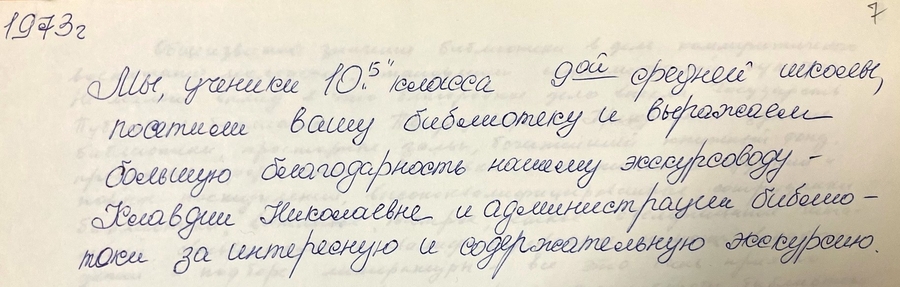 1973г
7
Мы, ученики 10 „Б" класса 9ой средней школы,
посетили вашу библиотеку и выражаем
большую благодарность нашему экскурсоводу –
Клавдии Николаевне и администрации библио-
теки за интересную и содержательную экскурсию.